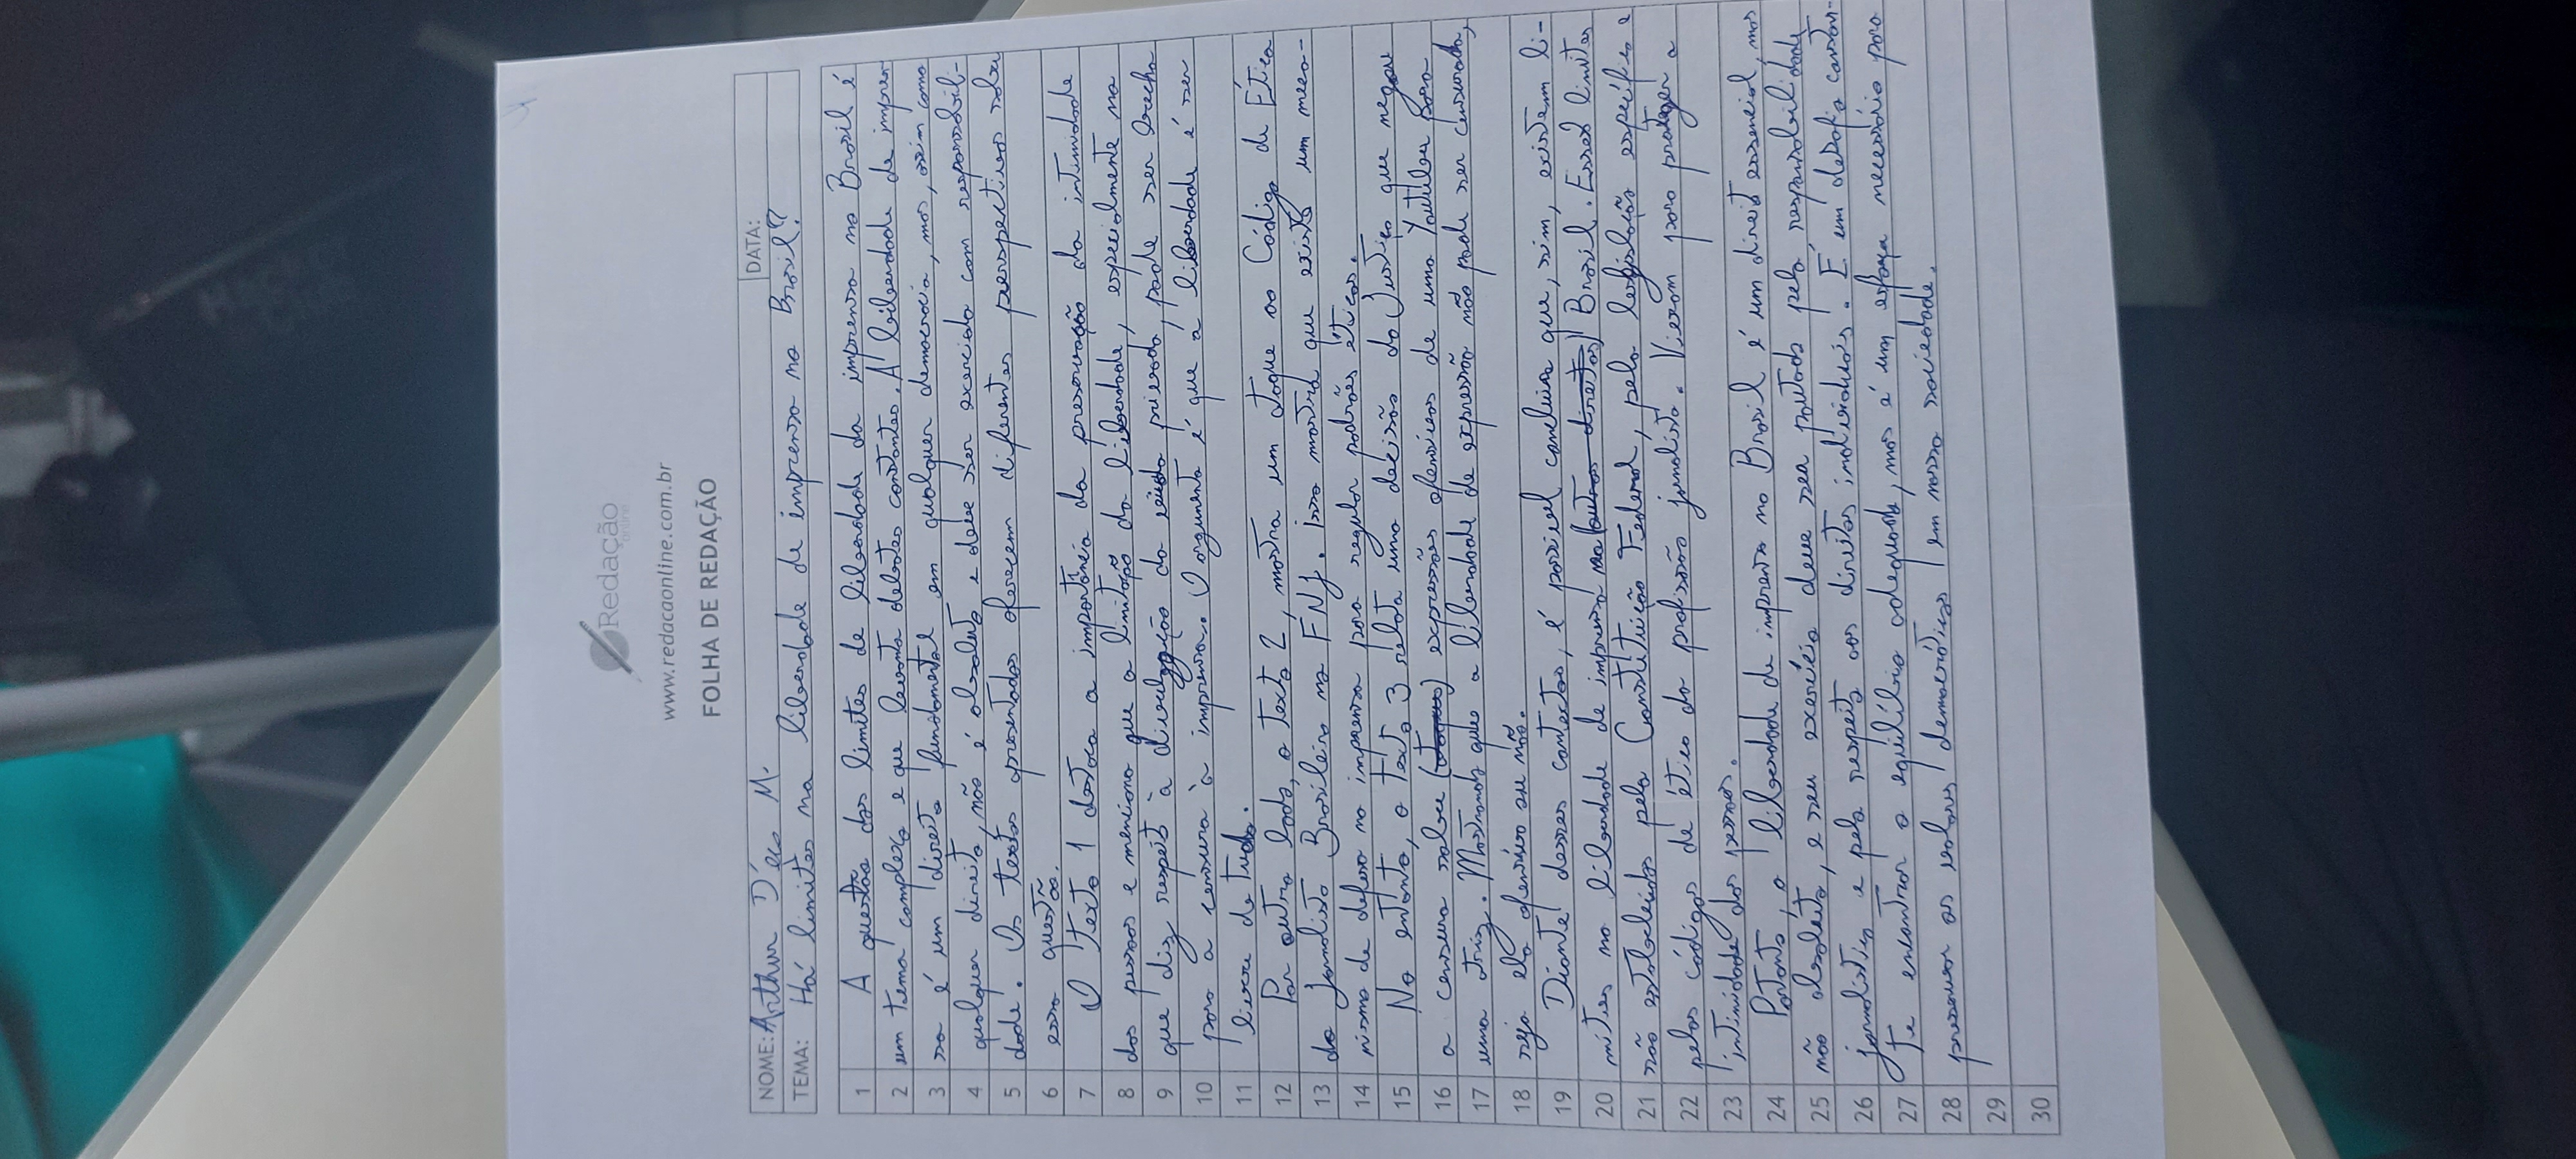 Redação
online
www.redacaonline.com.br
FOLHA DE REDAÇÃO
NOME: Arthur D'éço M.
DATA:
TEMA: Há limites na liberdade de imprensa no Brasil?
1 A questão dos limites de liberdade da imprensa no Brasil é
2 um tema complexo e que levanta debates constantes. A liberdade de impren
3 sa é um direito fundamental em qualquer democracia, mas, assim como
4 qualquer direito, não é absoluto e deve ser exercido com responsabili-
5 dade. Os textos apresentados oferecem diferentes perspectivas sobre
6 essa questão.
7 O Texto 1 destaca a importância da preservação da intimidade
8 das pessoas e menciona que a limitação da liberdade, especialmente no
9 que diz respeito à divulgação da vida privada, pode ser brecha
10 para a censura à imprensa. O argumento é que a liberdade é ser
11 livre de tudo.
12 Por outro lado, o texto 2, mostra um ataque ao Código de Ética
13 do Jornalista Brasileiro na FNJ. Isso mostra que existe um meca-
14 nismo de defesa na imprensa para regular padrões éticos.
15 No entanto, o texto 3 relata uma decisão da Justiça que negou
16 a censura sobre expressões ofensivas de uma Youtuber para
17 uma atriz. Mostrando que a liberdade de expressão não pode ser censurada,
18 seja ela ofensiva ou não.
19 Diante desses contextos, é possível concluir que, sim, existem li-
20 mites na liberdade de imprensa no (outros direitos) Brasil. Esses limites
21 são estabelecidos pela Constituição Federal, pela legislação específica e
22 pelos códigos de ética da profissão jornalista. Vieram para proteger a
23 intimidade das pessoas.
24 Portanto, a liberdade de imprensa no Brasil é um direito essencial, mas
25 não absoluto, e seu exercício deve ser pautado pela responsabilidade
26 jornalística e pelo respeito aos direitos individuais. É um desafio constan-
27 te encontrar o equilíbrio adequado, mas é um esforço necessário para
28 preservar os valores democráticos em nossa sociedade.
29
30